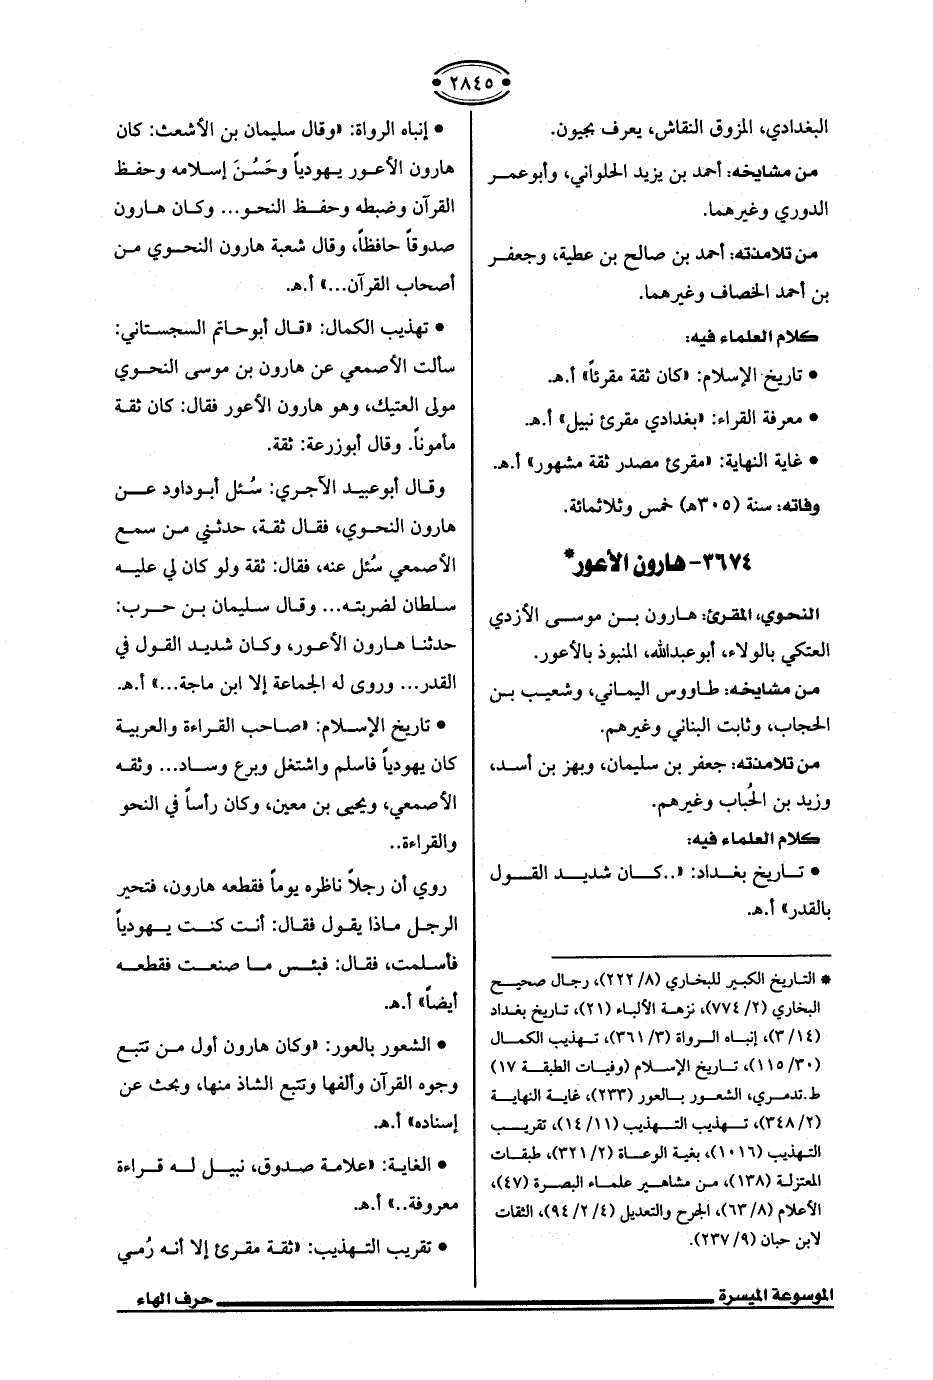 ٢٨٤٥
البغدادي، المزوق النقاش، يعرف بجيون.
من مشايخه: أحمد بن يزيد الحلواني، وأبو عمر
الدوري وغيرهما.
من تلامذته: أحمد بن صالح بن عطية، وجعفر
بن أحمد الخصاف وغيرهما.
كلام العلماء فيه:
• تاريخ الإسلام: «كان ثقة مقرئاً» أ.هـ.
• معرفة القراء: «بغدادي مقرئ نبيل» أ.هـ.
• غاية النهاية: «مقرئ مصدر ثقة مشهور» أ.هـ.
وفاته: سنة (٣٠٥هـ) خمس وثلاثمائة.
٣٦٧٤- هارون الأعور*
النحوي، المقرئ: هارون بن موسى الأزدي
العتكي بالولاء، أبو عبدالله، المنبوذ بالأعور.
من مشايخه: طاووس اليماني، وشعيب بن
الحجاب، وثابت البناني وغيرهم.
من تلامذته: جعفر بن سليمان، وبهز بن أسد،
وزيد بن الحُباب وغيرهم.
كلام العلماء فيه:
• تاريخ بغداد: «..كان شديد القول
بالقدر» أ.هـ.
* التاريخ الكبير للبخاري (٨/ ٢٢٢)، رجال صحيح
البخاري (٢/ ٧٧٤)، نزهة الألباء (٢١)، تاريخ بغداد
(١٤/ ٣)، إنباه الرواة (٣/ ٣٦١)، تهذيب الكمال
(٣٠/ ١١٥)، تاريخ الإسلام (وفيات الطبقة ١٧)
ط.تدمري، الشعور بالعور (٢٣٣)، غاية النهاية
(٢/ ٣٤٨)، تهذيب التهذيب (١١/ ١٤)، تقريب
التهذيب (١٠١٦)، بغية الوعاة (٢/ ٣٢١)، طبقات
المعتزلة (١٣٨)، من مشاهير علماء البصرة (٤٧)،
الأعلام (٨/ ٦٣)، الجرح والتعديل (٤/ ٢/ ٩٤)، الثقات
لابن حبان (٩/ ٢٣٧).
• إنباه الرواة: «وقال سليمان بن الأشعث: كان
هارون الأعور يهودياً وحَسُنَ إسلامه وحفظ
القرآن وضبطه وحفظ النحو... وكان هارون
صدوقاً حافظاً، وقال شعبة هارون النحوي من
أصحاب القرآن...» أ.هـ.
• تهذيب الكمال: «قال أبو حاتم السجستاني:
سألت الأصمعي عن هارون بن موسى النحوي
مولى العتيك، وهو هارون الأعور فقال: كان ثقة
مأموناً. وقال أبوزرعة: ثقة.
وقال أبو عبيد الآجري: سُئل أبو داود عن
هارون النحوي، فقال ثقة، حدثني من سمع
الأصمعي سُئل عنه، فقال: ثقة ولو كان لي عليه
سلطان لضربته... وقال سليمان بن حرب:
حدثنا هارون الأعور، وكان شديد القول في
القدر... وروى له الجماعة إلا ابن ماجة...» أ.هـ.
• تاريخ الإسلام: «صاحب القراءة والعربية
كان يهودياً فاسلم واشتغل وبرع وساد... وثقه
الأصمعي، ويحيى بن معين، وكان رأساً في النحو
والقراءة..
روي أن رجلاً ناظره يوماً فقطعه هارون، فتحير
الرجل ماذا يقول فقال: أنت كنت يهودياً
فأسلمت، فقال: فبئس ما صنعت فقطعه
أيضاً» أ.هـ.
• الشعور بالعور: «وكان هارون أول من تتبع
وجوه القرآن وألفها وتتبع الشاذ منها، وبحث عن
إسناده» أ.هـ.
• الغاية: «علامة صدوق، نبيل له قراءة
معروفة..» أ.هـ.
• تقريب التهذيب: «ثقة مقرئ إلا أنه رُمي
الموسوعة الميسرة
حرف الهاء